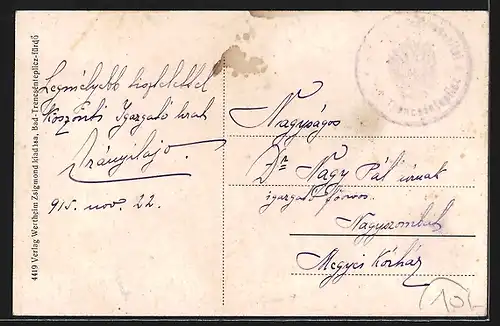 4419 Verlag Wertheim Zsigmond kiadása, Bad-Trencsénteplicz-fürdő
Legmélyebb tisztelettel
Köszönti Igazgató urat
Irányilajo.
915. nov. 22.
Nagyságos
Dr Nagy Pál úrnak
igazgató főorvos
Nagyszombat
Megyei Kórház
10.